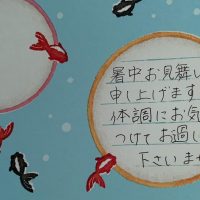 暑中お見舞い
申し上げます
体調にお気
つけてお過し
下さいませ